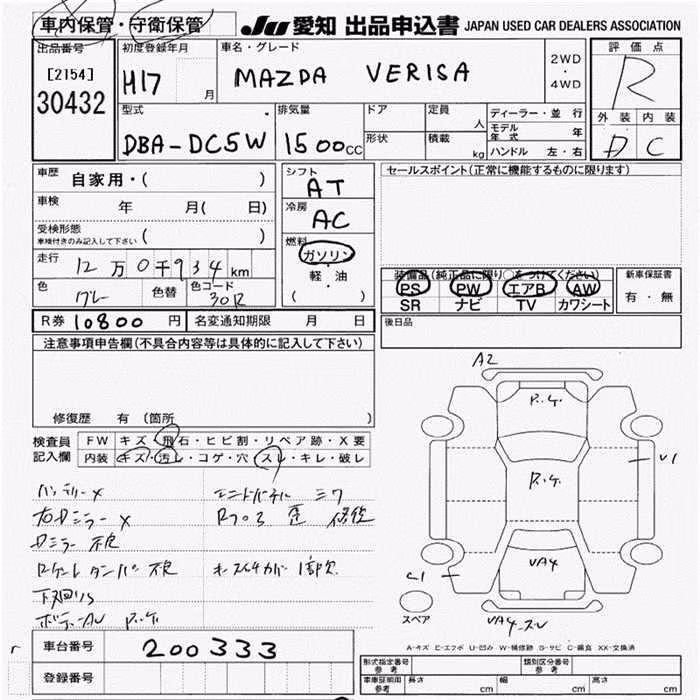 車内保管・守衛保管
JU 愛知 出品申込書 JAPAN USED CAR DEALERS ASSOCIATION
出品番号
[2154]
30432
初度登録年月
H17 月
車名・グレード
MAZDA VERISA
2WD
・
4WD
評価点
R
型式
DBA-DC5W
排気量
1500cc
ドア
形状
定員 人
積載 kg
ディーラー・並行
モデル年式 年
ハンドル 左・右
外装 内装
D C
車歴 自家用・( )
車検 年 月( 日)
受検形態
車検付きのみ記入して下さい ( )
走行 12万0千934km
色 グレー 色替 色コード 30R
シフト
AT
冷房
AC
燃料
ガソリン
・
軽・油
( )
セールスポイント(正常に機能するものに限ります)
装備品(純正品に限り○をつけてください)
PS PW エアB AW
SR ナビ TV カワシート
新車保証書
有・無
R券 10800円 名変通知期限 月 日
後日品
注意事項申告欄(不具合内容等は具体的に記入して下さい)
修復歴 有 (箇所 )
検査員
記入欄
FW キズ・飛石・ヒビ割・リペア跡・X要
内装 キズ・汚レ・コゲ・穴・スレ・キレ・破レ
バッテリーX
右Dミラー X
Dミラー 不良
不良
下廻りS
A2
P.ケ.
P.ケ.
U1
UA4
C1
スペア
A-キズ E-エクボ U-凹み W-補修跡 S-サビ C-腐食 XX-交換済
車台番号 200333
登録番号
型式指定番号
参考
類別区分番号
参考
車庫証明用
参考
長さ cm 幅 cm 高さ cm